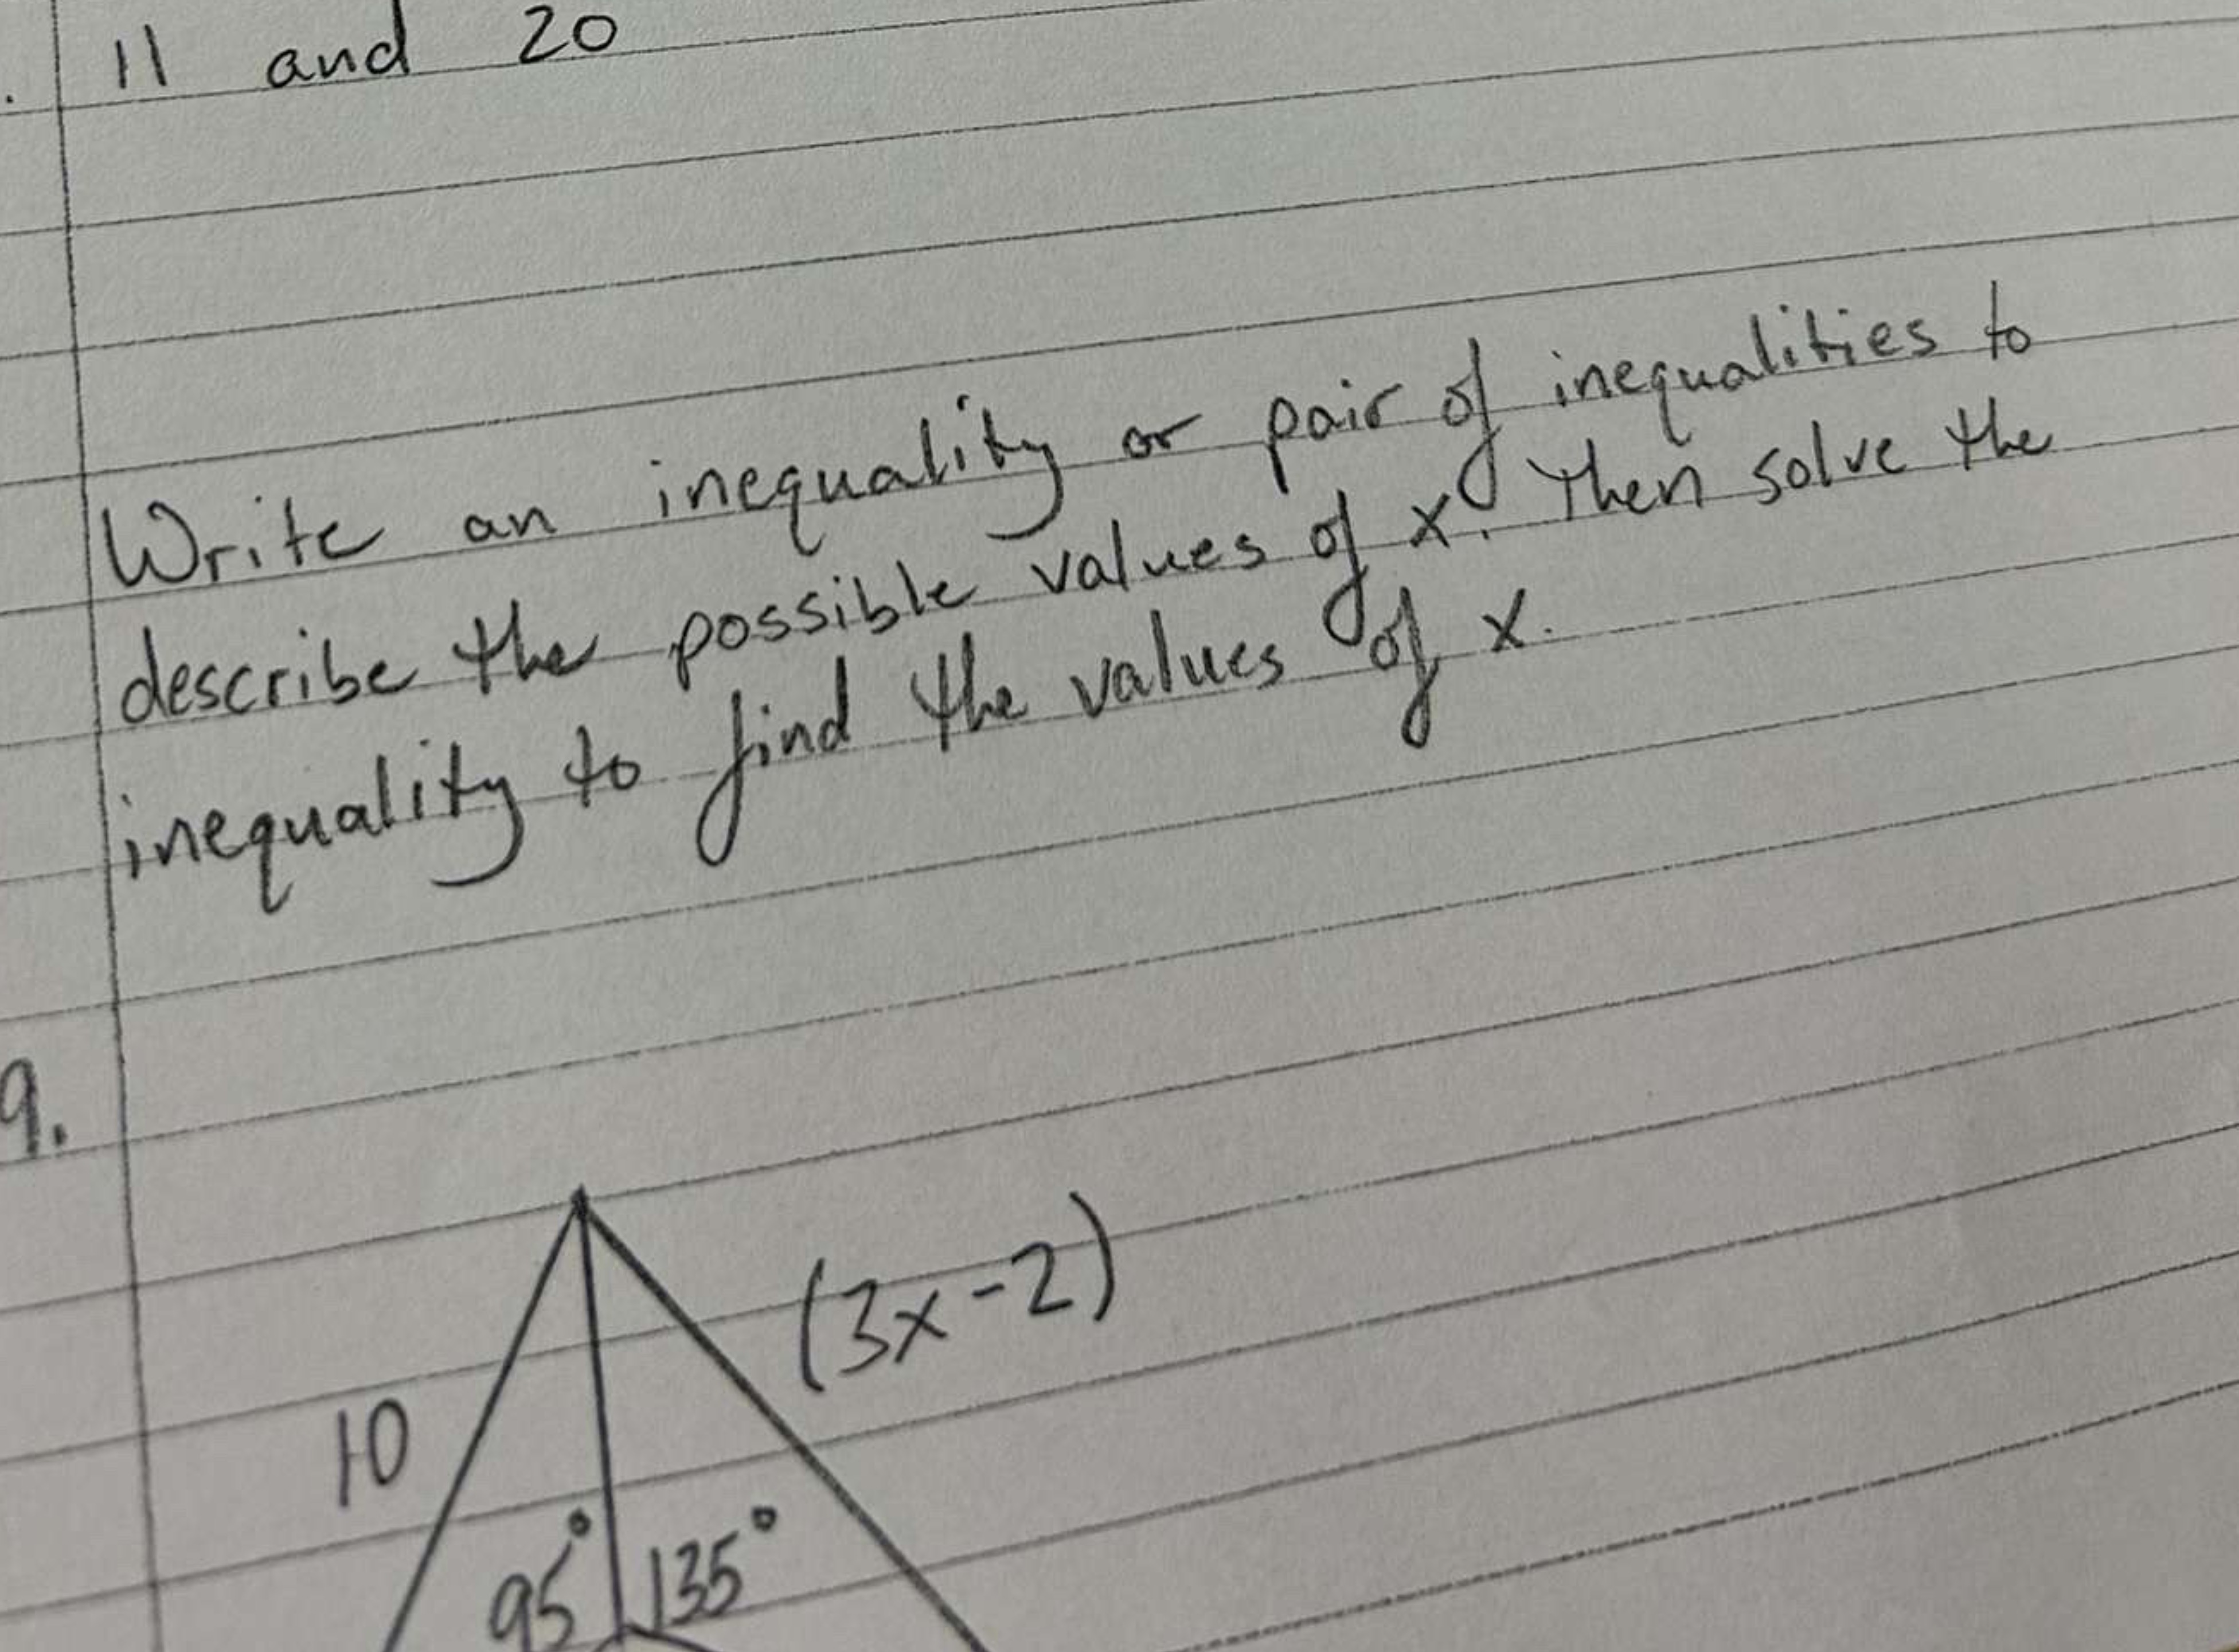 . 11 and 20
Write an inequality or pair of inequalities to
describe the possible values of x. Then solve the
inequality to find the values of x.
9.
(3x-2)
10
95° 135°